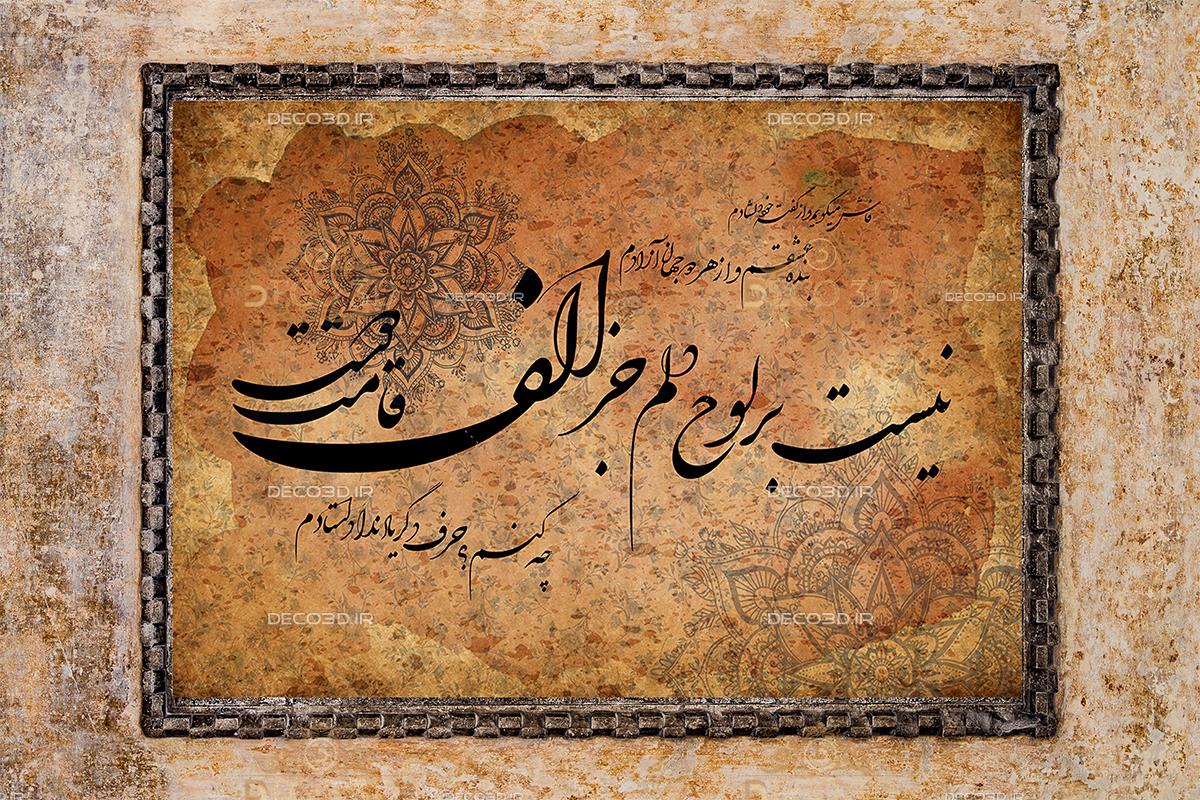 DECO3D.IR DECO3D.IR
فاش میگویم و از گفته خود دلشادم
بنده عشقم و از هر دو جهان آزادم
نیست بر لوح دلم جز الف قامت دوست
DECO3D.IR DECO3D.IR
چه کنم؟ حرف دگر یاد نداد استادم
DECO3D.IR DECO3D.IR